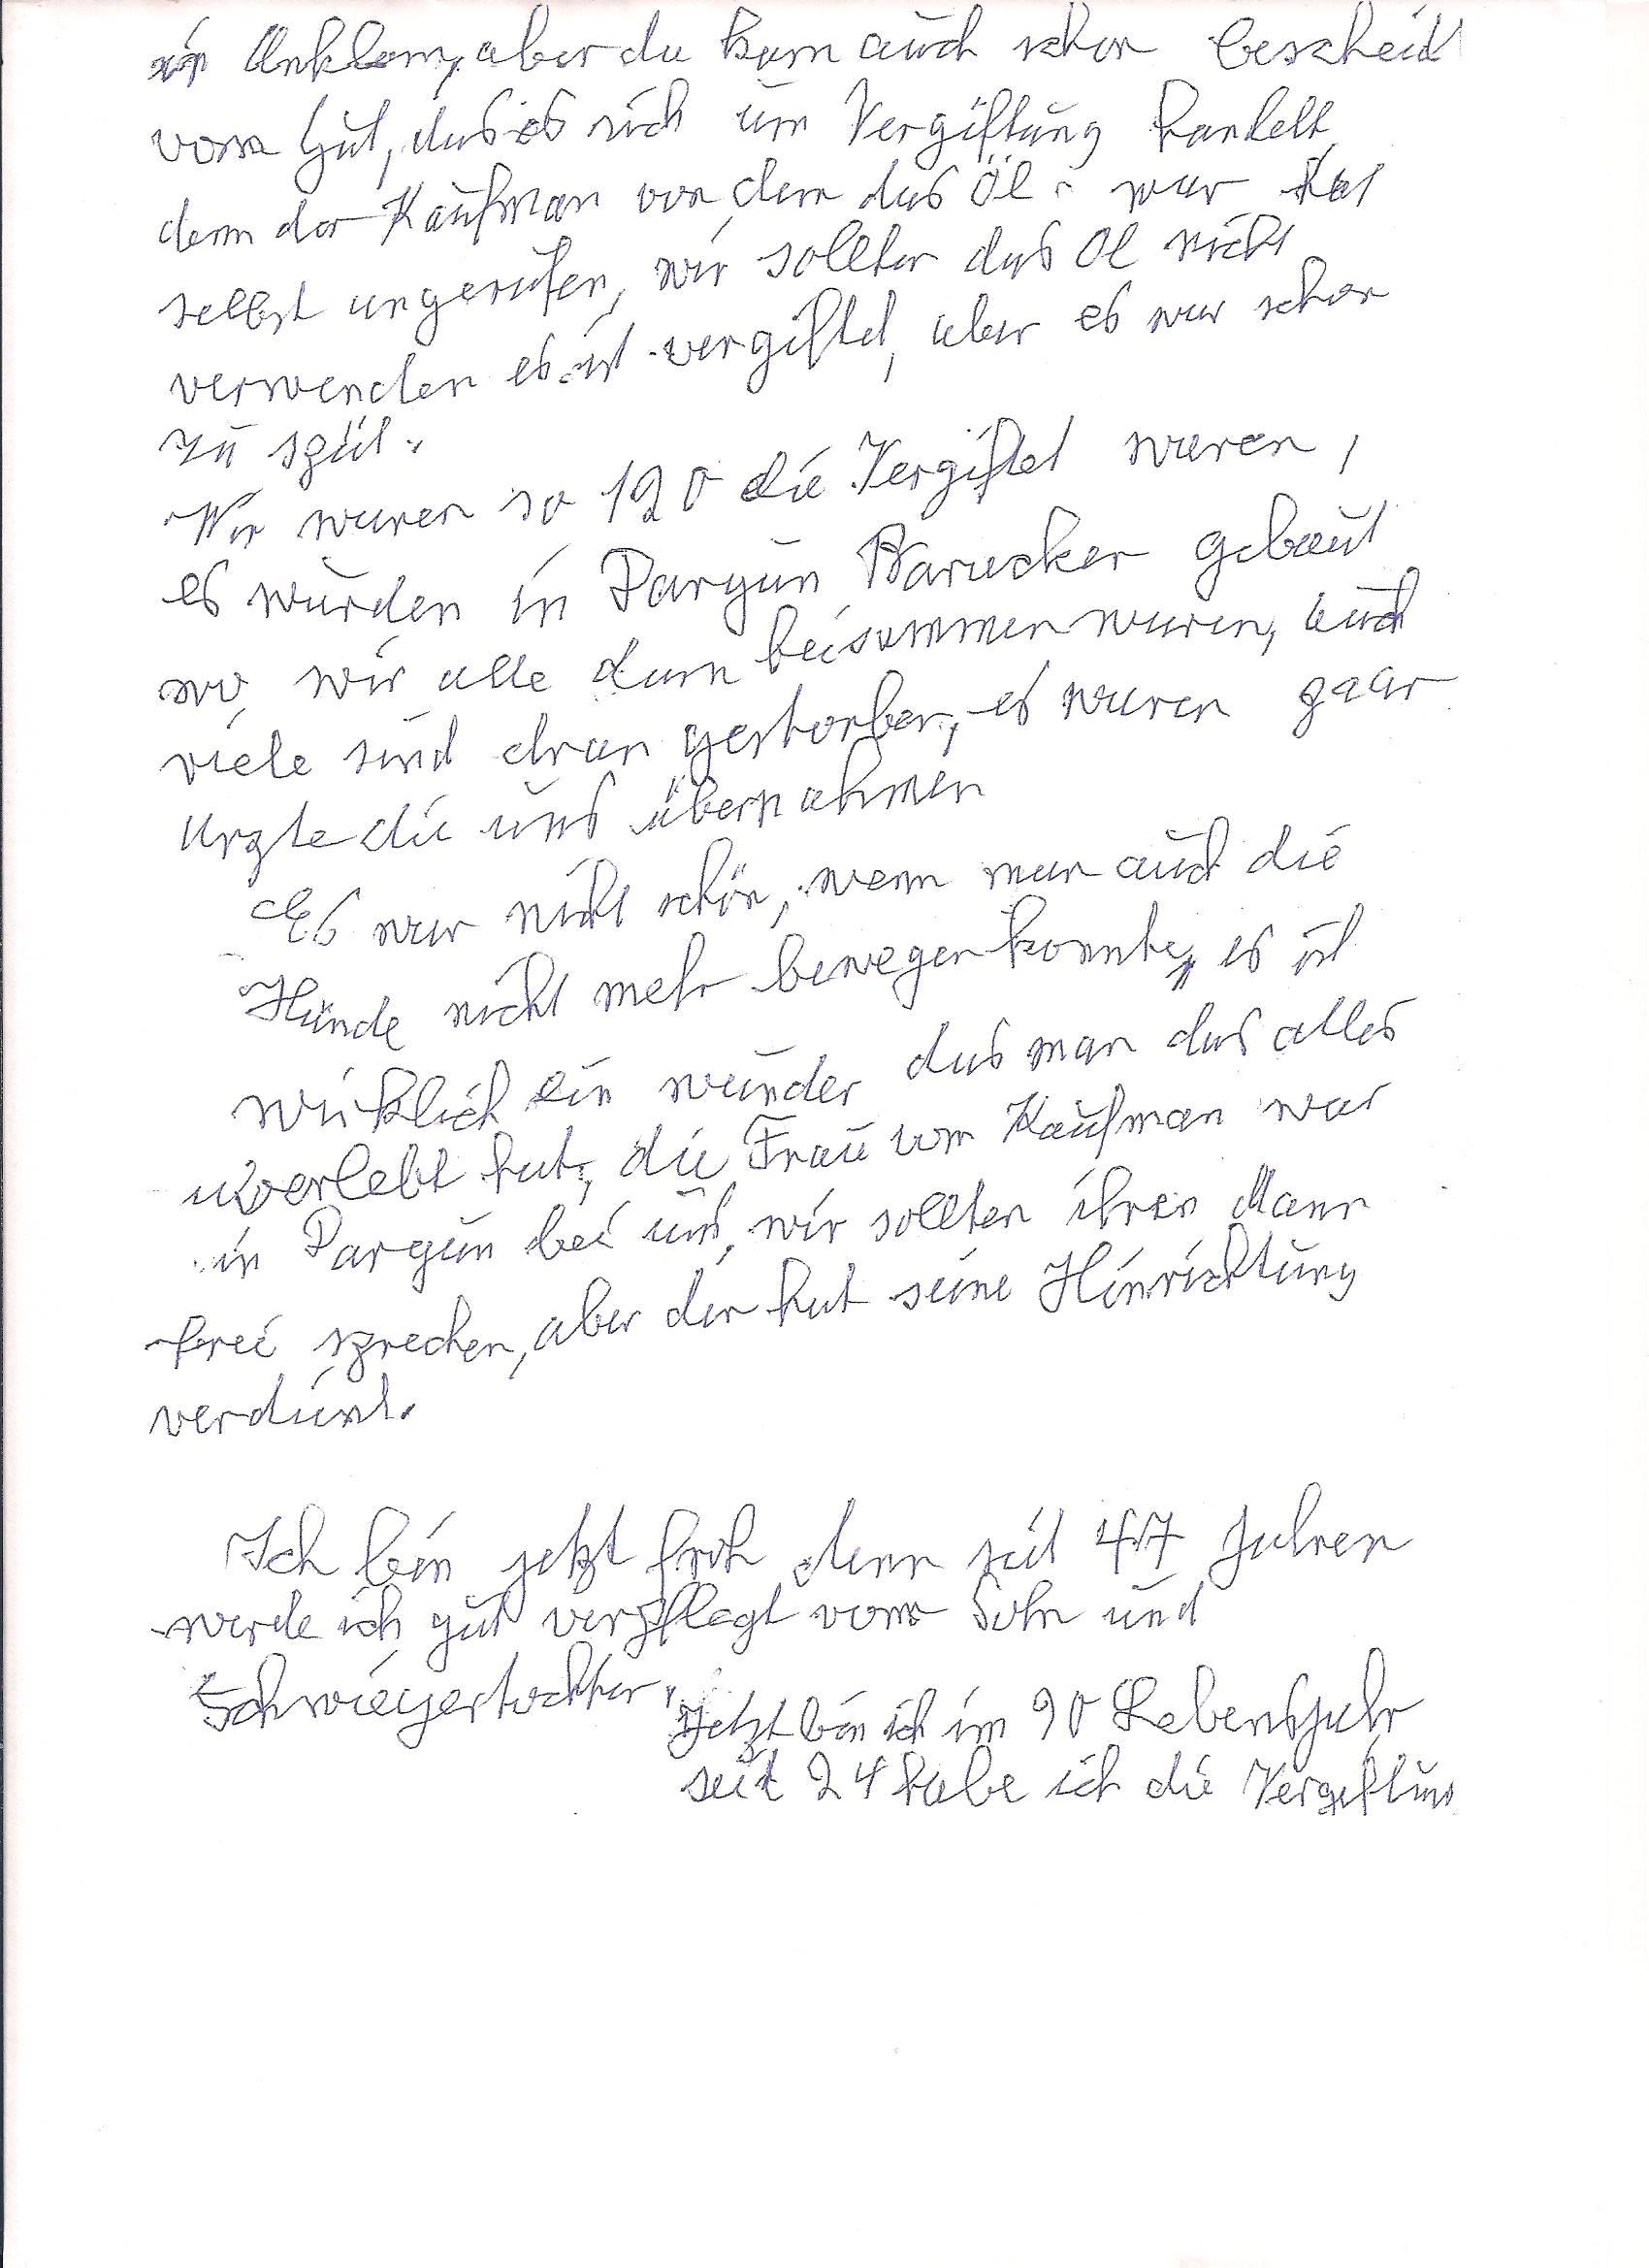 in Anklam, aber da kam auch schon bescheid
vom Gut, das es sich um Vergiftung handelt,
denn der Kaufman von dem das Öl war hat
selbst angerufen, wir sollten das Öl nicht
verwenden es ist vergiftet, aber es war schon
zu spät.
Wir waren so 120 die Vergiftet waren,
es wurden in Dargun Baracken gebaut
wo, wir alle dann beisammen waren, auch
viele sind dran gestorben, es waren gaar
Arzte die uns übernahmen
Es war nicht schön, wenn man auch die
Hände nicht mehr bewegen konnte, es ist
wirklich ein wunder das man das alles
überlebt hat, die Frau vom Kaufman war
in Dargun bei uns, wir sollten ihren Mann
frei sprechen, aber der hat seine Hinrichtung
verdient.
Ich bin jetzt froh denn seit 47 Jahren
werde ich gut verpflegt vom Sohn und
Schwiegertochter.
Jetzt bin ich im 90 Lebensjahr
seit 24 habe ich die Vergiftung